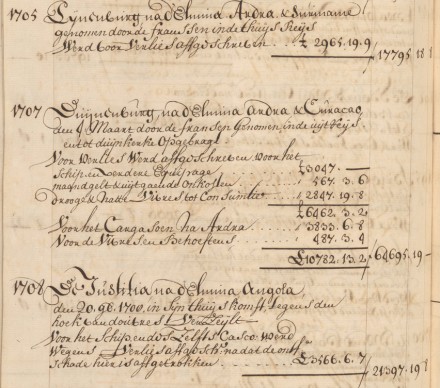 1705 Eynenburg nad Elmina Ardra & Suriname
genomen door de franssen in de thuijs Reijs
Werd voor Verlies affgeschreven £ 2965.19.9
17795 18
1707 Duijnenburg, nad Elmina Ardra & Curacao,
den 4 Maart door de fransen Genomen, in de uijt Reijs
en tot duijnkerke Opgebragt
Voor Verlies Werd affgeschreven voor het
Schip, en Verdere Equipage £3047.
maandgelt & uijtgaende Onkosten 567. 3.6
drooge & natte Vivres tot Consumtie 2847.19.8
£6462.3.2
Voor het Cargasoen na Ardra 3833.6.8
Voor de Vivres en Behoeftens 487.3.4
£10782.13.2
64695.19
1708 De Justitia nad Elmina Angola
den 20. 1708, in Sijn thuijs komst, tegens den
hoek van
Voor het Schip en des Zelfs Casco Werd
Wegens Verlies affgeschr. nadat de
Schade hier is affgetrokken £3566.6.7
21397.19